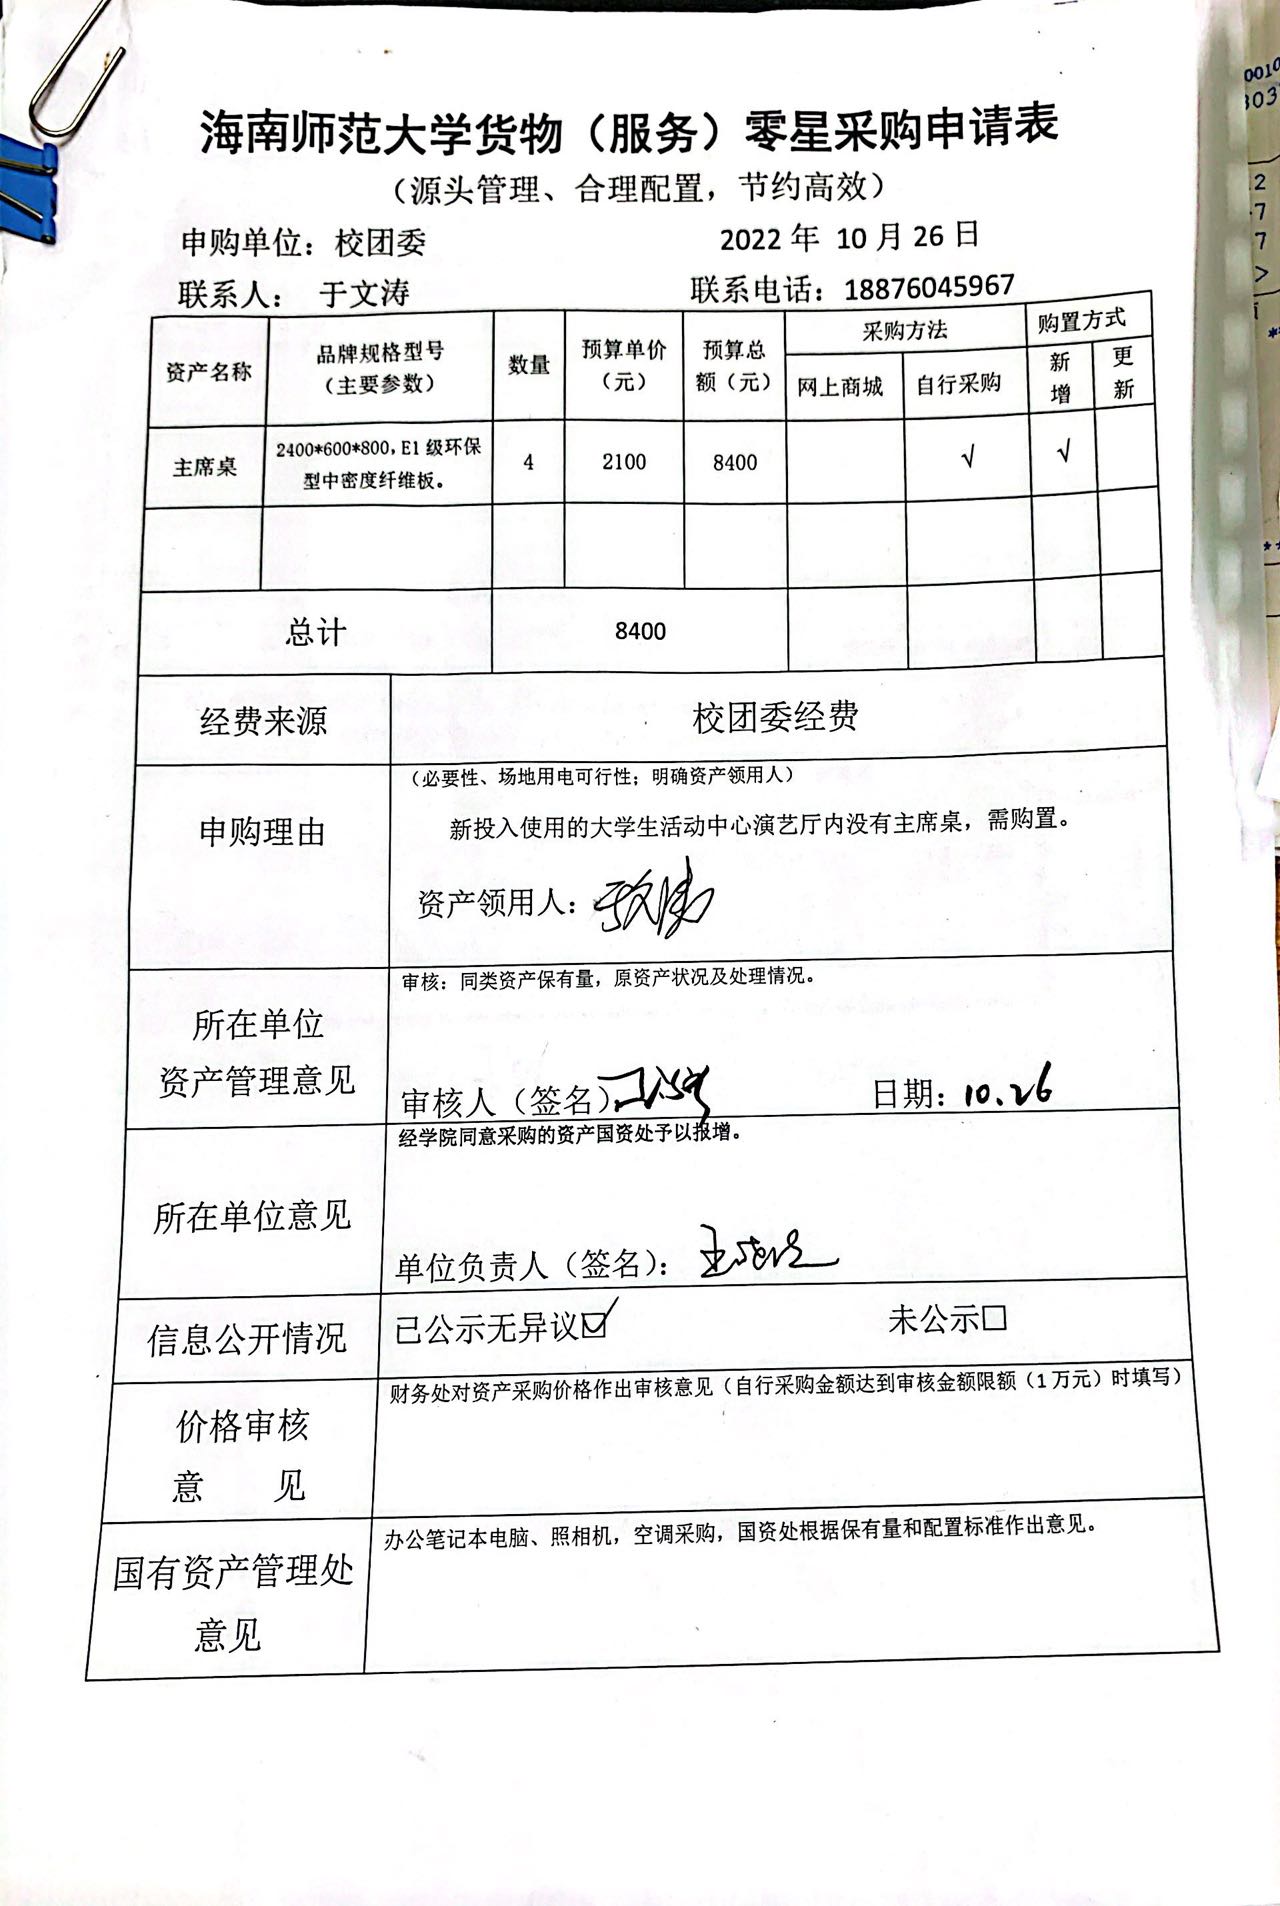 海南师范大学货物（服务）零星采购申请表
（源头管理、合理配置，节约高效）
申购单位：校团委 2022 年 10 月 26 日
联系人： 于文涛 联系电话：18876045967
资产名称 品牌规格型号（主要参数） 数量 预算单价（元） 预算总额（元） 采购方法 购置方式
网上商城 自行采购 新增 更新
主席桌 2400*600*800，E1 级环保型中密度纤维板。 4 2100 8400 √ √
总计 8400
经费来源 校团委经费
（必要性、场地用电可行性；明确资产领用人）
申购理由 新投入使用的大学生活动中心演艺厅内没有主席桌，需购置。
资产领用人：于文涛
审核：同类资产保有量，原资产状况及处理情况。
所在单位
资产管理意见 审核人（签名） 日期：10.26
经学院同意采购的资产国资处予以报增。
所在单位意见
单位负责人（签名）：
信息公开情况 已公示无异议☑ 未公示□
财务处对资产采购价格作出审核意见（自行采购金额达到审核金额限额（1 万元）时填写）
价格审核
意 见
办公笔记本电脑、照相机，空调采购，国资处根据保有量和配置标准作出意见。
国有资产管理处
意见